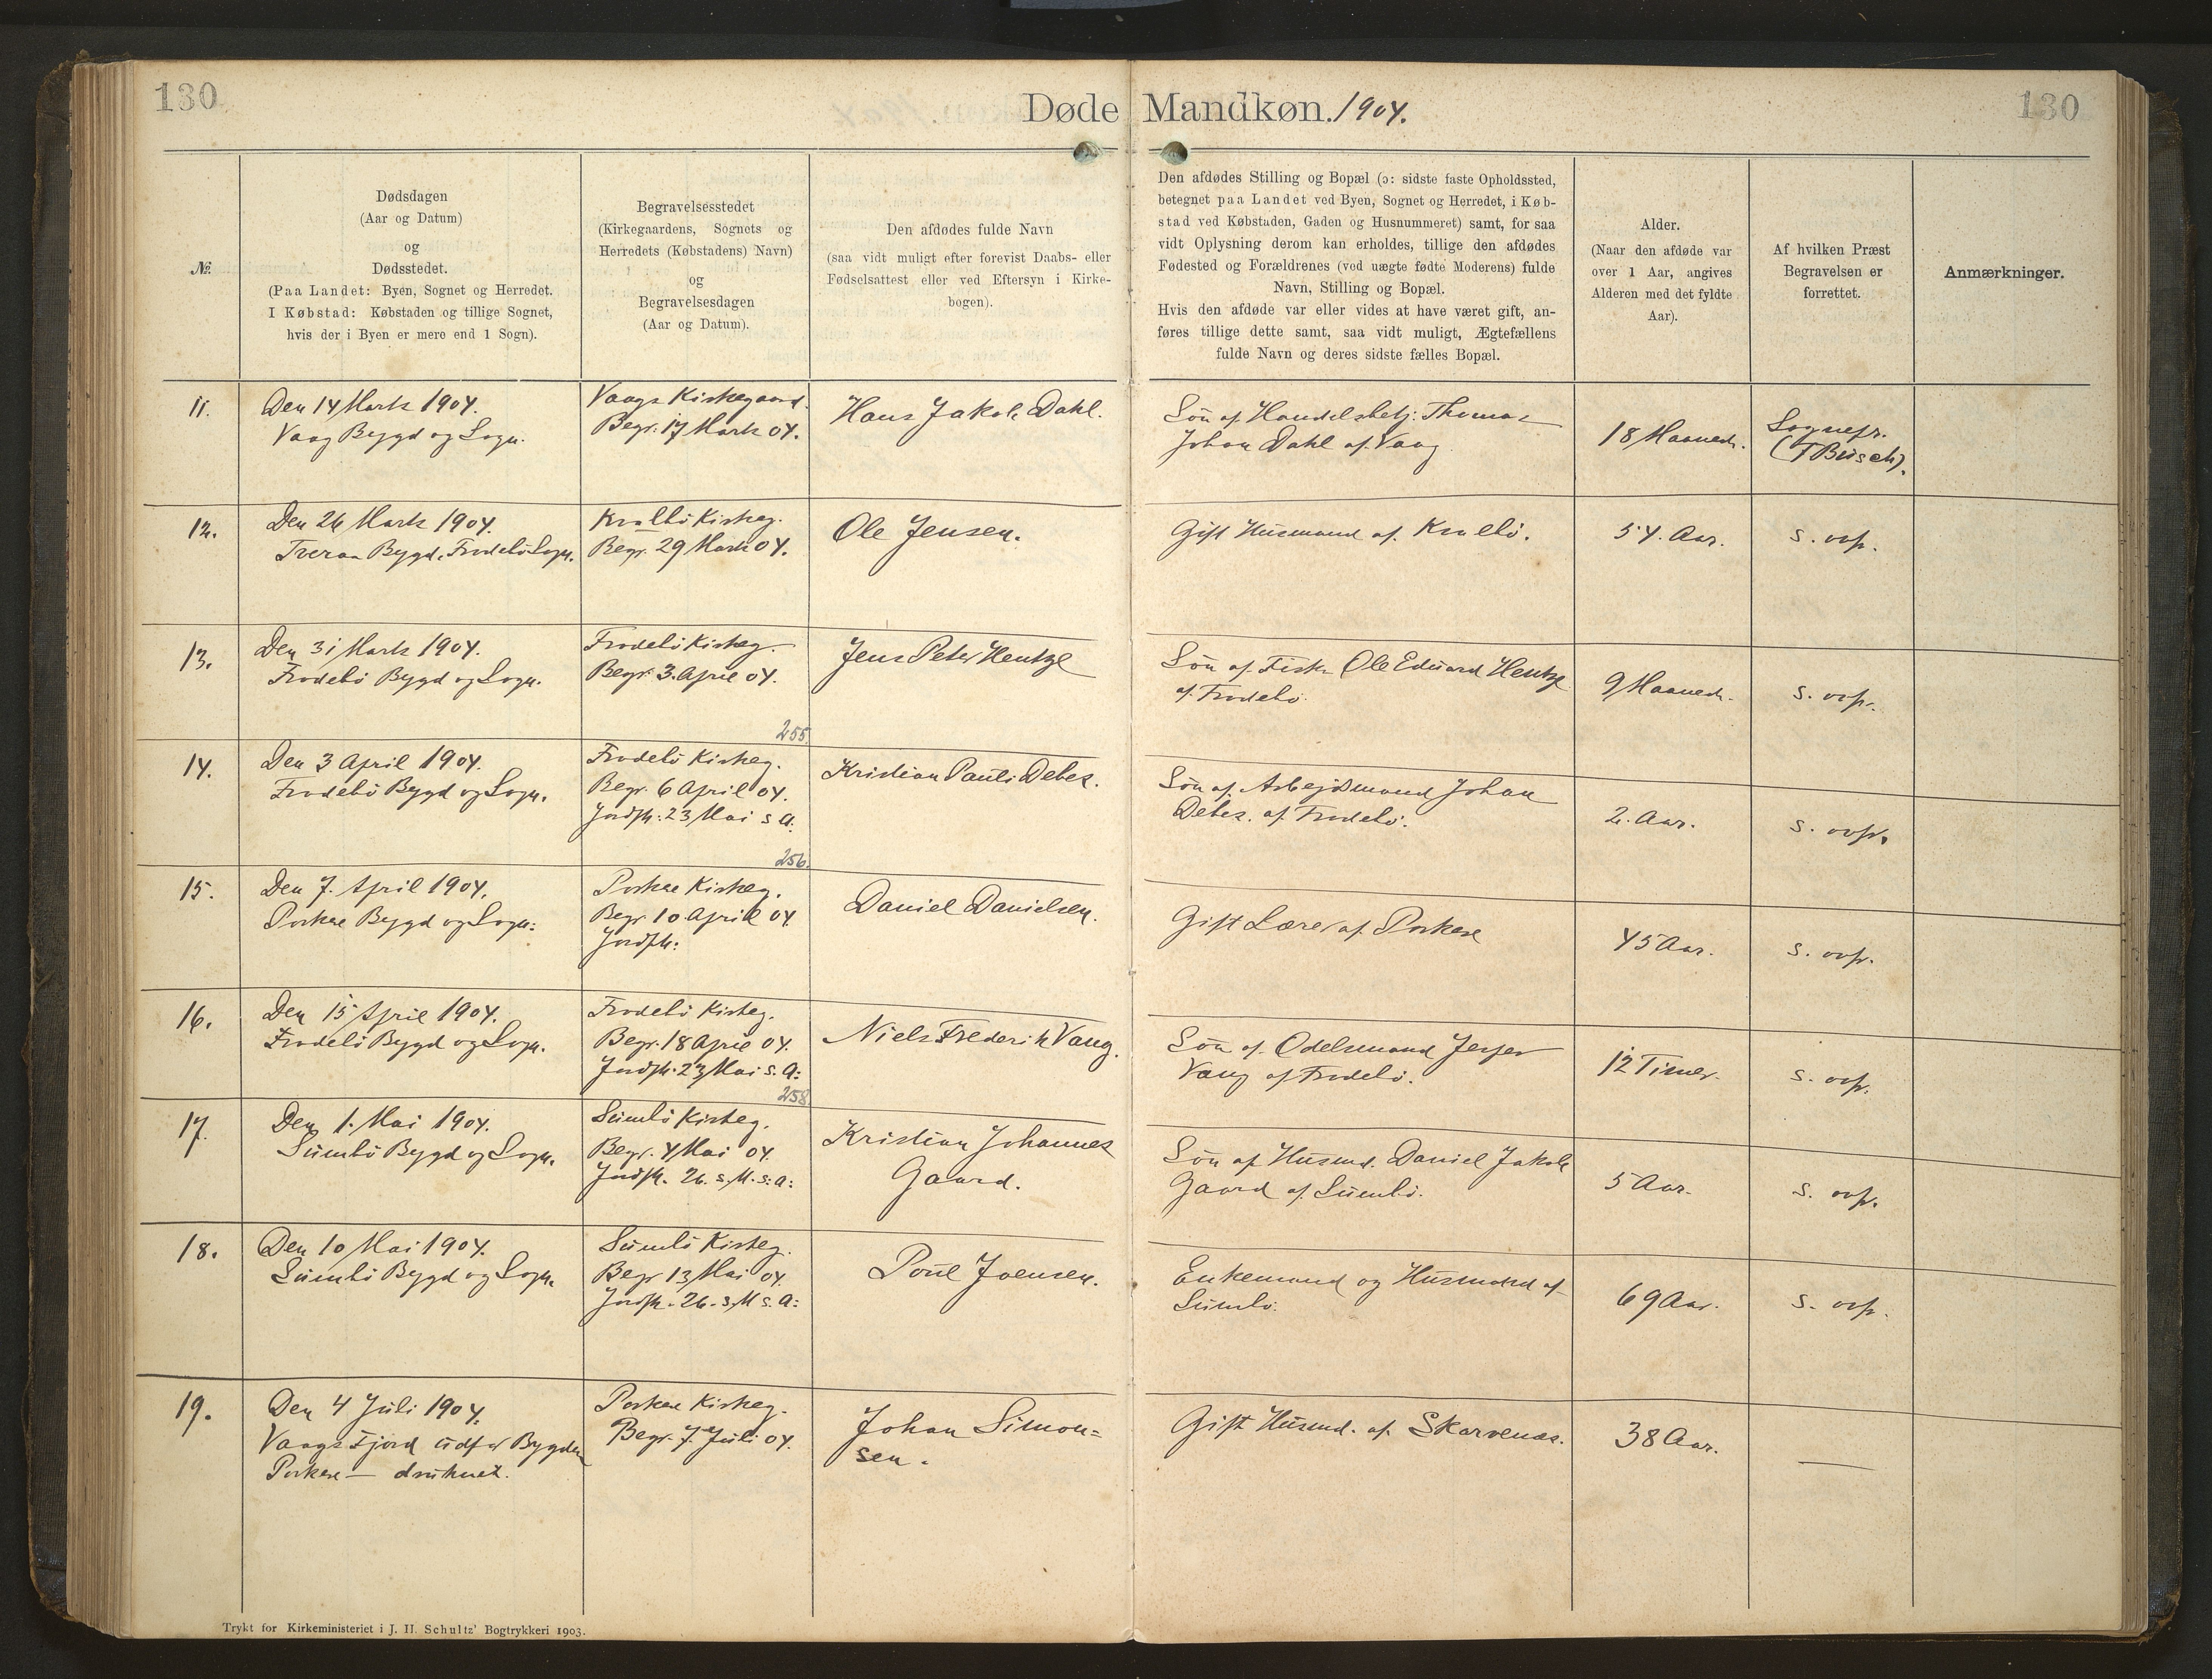 130
Døde Mandkøn. 1904.
130
№
Dødsdagen
(Aar og Datum)
og
Dødsstedet.
(Paa Landet: Byen, Sognet og Herredet.
I Købstad: Købstaden og tillige Sognet,
hvis der i Byen er mere end 1 Sogn).
Begravelsesstedet
(Kirkegaardens, Sognets og
Herredets (Købstadens) Navn)
og
Begravelsesdagen
(Aar og Datum).
Den afdødes fulde Navn
(saa vidt muligt efter forevist Daabs- eller
Fødselsattest eller ved Eftersyn i Kirke-
bogen).
Den afdødes Stilling og Bopæl (ɔ: sidste faste Opholdssted,
betegnet paa Landet ved Byen, Sognet og Herredet, i Køb-
stad ved Købstaden, Gaden og Husnummeret) samt, for saa
vidt Oplysning derom kan erholdes, tillige den afdødes
Fødested og Forældrenes (ved uægte fødte Moderens) fulde
Navn, Stilling og Bopæl.
Hvis den afdøde var eller vides at have været gift, an-
føres tillige dette samt, saa vidt muligt, Ægtefællens
fulde Navn og deres sidste fælles Bopæl.
Alder.
(Naar den afdøde var
over 1 Aar, angives
Alderen med det fyldte
Aar).
Af hvilken Præst
Begravelsen er
forrettet.
Anmærkninger.
11.
Den 14 Marts 1904.
Vaag Bygd og Sogn.
Vaags Kirkegaard.
Begr. 17 Marts 04.
Hans Jakob Dahl.
Søn af Handelsbetj. Thomas
Johan Dahl af Vaag
18 Maaneder.
Sognepr.
(F Busch).
12.
Den 26 Marts 1904.
Tveraa Bygd, Frodebö Sogn.
Kvalbö Kirkeg.
Begr. 29 Marts 04.
Ole Jensen.
Gift Husmand af Kvalbö.
54. Aar.
s. ovfr.
13.
Den 31 Marts 1904.
Frodebö Bygd og Sogn.
Frodebö Kirkeg.
Begr. 3. April 04.
Jens Peter Hentze
Søn af Fisker Ole Eduard Hentze
af Frodebö
9 Maaneder.
s. ovfr.
14.
Den 3 April 1904.
Frodebö Bygd og Sogn.
255.
Frodebö Kirkeg.
Begr. 6 April 04.
Jordfk: 23 Mai s. A:
Kristian Pauli Debes.
Søn af Arbejdsmand Johan
Debes. af Frodebö.
2. Aar.
s. ovfr.
15.
Den 7. April 1904.
Porkere Bygd og Sogn:
256.
Porkere Kirkeg.
Begr. 10 April 04
Jordfk:
Daniel Danielsen.
Gift Lærer af Porkere
45 Aar.
s. ovfr.
16.
Den 15 April 1904.
Frodebö Bygd og Sogn.
Frodebö Kirkeg.
Begr. 18 April 04.
Jordfk. 23 Mai s. A:
Niels Frederik Vang.
Søn af Odelsmand Jesper
Vang af Frodebö.
12 Timer.
s. ovfr.
17.
Den 1. Mai 1904.
Sumbö Bygd og Sogn.
258
Sumbö Kirkeg.
Begr. 4 Mai 04.
Jordfk. 26. s. M. s: A:
Kristian Johannes
Gaard.
Søn af Husmd. Daniel Jakob
Gaard af Sumbö.
5 Aar.
s. ovfr.
18.
Den 10 Mai 1904.
Sumbö Bygd og Sogn.
Sumbö Kirkeg.
Begr 13 Mai 04.
Jordfk. 26. s. M s. A:
Poul Joensen.
Enkemand og Husmand af
Sumbö.
69 Aar.
s. ovfr.
19.
Den 4 Juli 1904.
Vaags Fjord udfor Bygden
Porkere — druknet.
Porkere Kirkeg.
Begr. 7. Juli 04.
Johan Simon=
sen.
Gift Husmd. af Skarvenæs.
38 Aar.
—
Trykt for Kirkeministeriet i J. H. Schultz' Bogtrykkeri 1903.